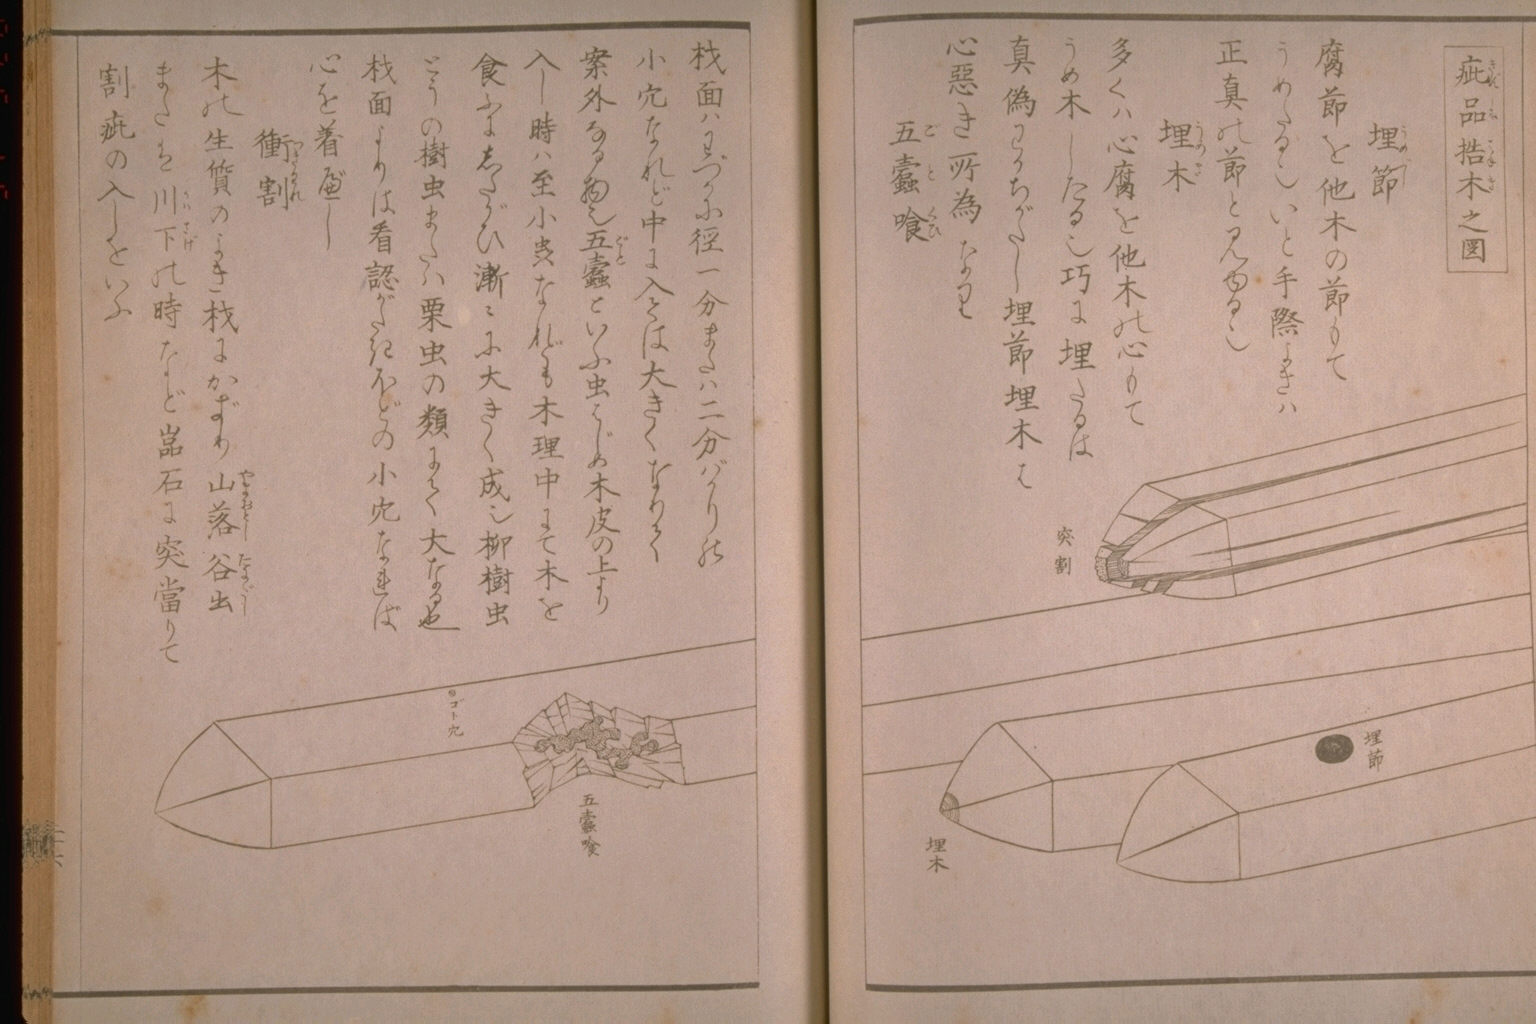 疵品拵木之図
埋節
腐節を他木の節もて
うめたるしいと手際よきハ
正真の節と見ゆるし
埋木
多くハ心腐を他木の心もて
うめ木したるし巧に埋たるは
真偽わかちがたし埋節埋木は
心悪き所為なり
五蠧喰
材面ハわづかに径一分またハ二分バかりの
小穴なれど中に入ては大きくなりて
案外なる物也五蠧といふ虫はじめ木皮の上より
入し時ハ至小虫なれども木理中にて木を
食ふにしたがひ漸々に大きく成也柳樹虫
とうの樹虫またハ栗虫の類にて大なる也
材面よりは看認がたきほどの小穴なれば
心を着べし
衝割
木の生質のよき材にかぎり山落谷出
または川下の時など嵓石に突當りて
割疵の入しをいふ
突割
埋節
埋木
ゴト穴
五蠧喰